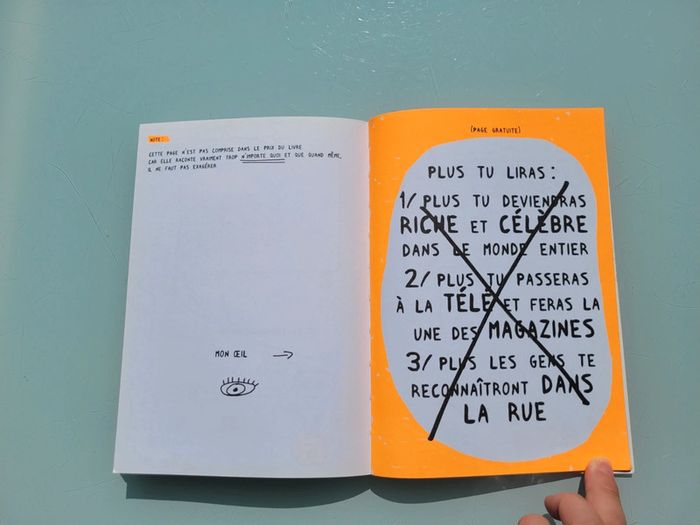 NOTE:
CETTE PAGE N'EST PAS COMPRISE DANS LE PRIX DU LIVRE
CAR ELLE RACONTE VRAIMENT TROP N'IMPORTE QUOI ET QUE QUAND MÊME,
IL NE FAUT PAS EXAGÉRER
MON ŒIL
(PAGE GRATUITE)
PLUS TU LIRAS :
1/ PLUS TU DEVIENDRAS
RICHE ET CÉLÈBRE
DANS LE MONDE ENTIER
2/ PLUS TU PASSERAS
À LA TÉLÉ ET FERAS LA
UNE DES MAGAZINES
3/ PLUS LES GENS TE
RECONNAÎTRONT DANS
LA RUE